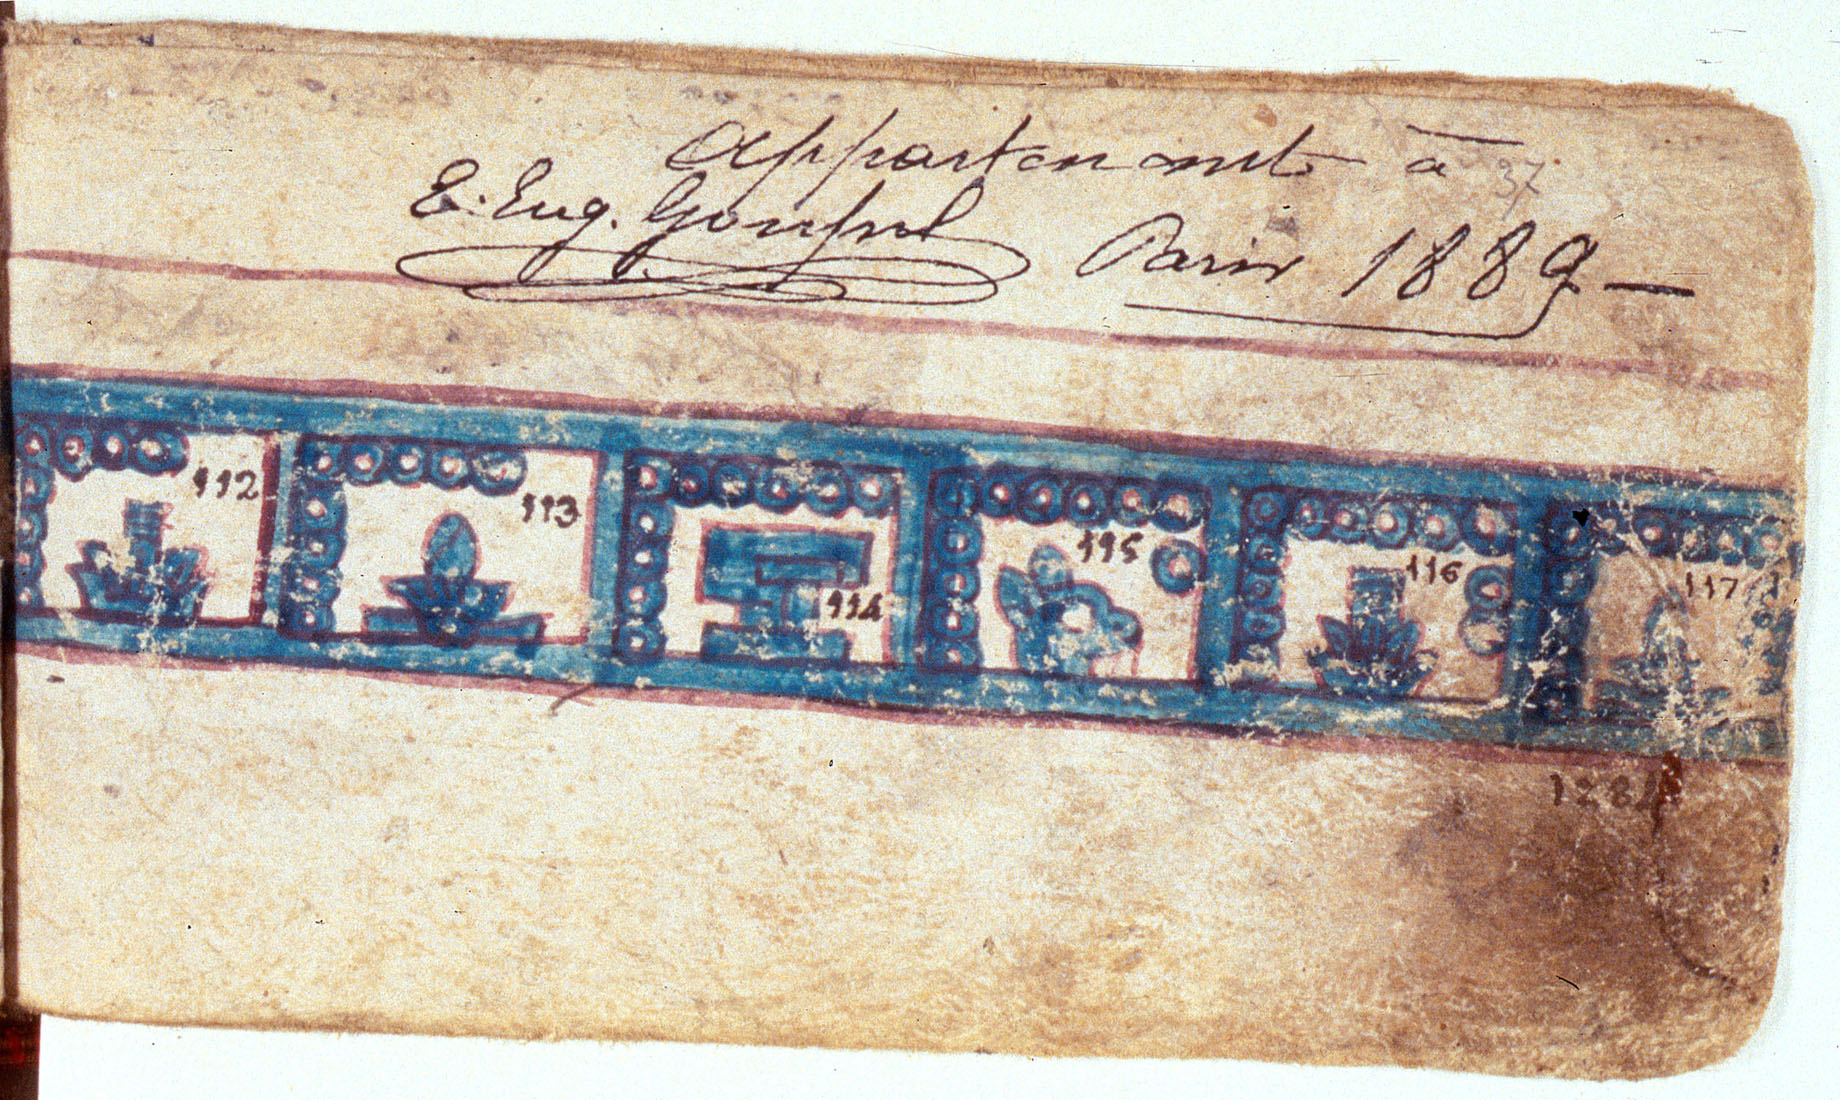 Appartenant à 37
E. Eug. Goupil Paris 1889 —
112
113
114
115
116
117